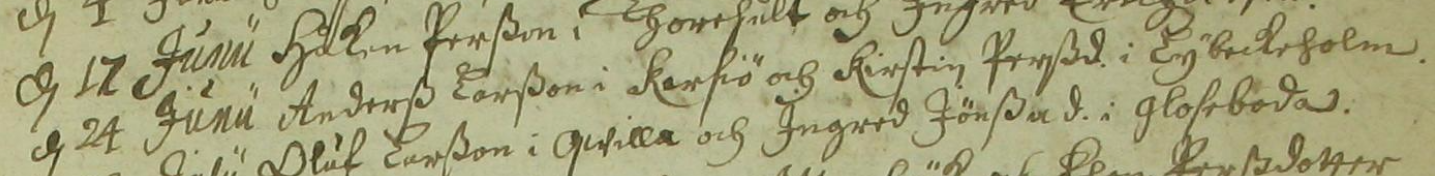 d 17 Junii Håken Perßon i Thorehult och Ingred
d 24 Junii Anderß Larßon i Karsiö och Kirstin Perßd. i Lybeckeholm.
Olüf Larßon i Qvilla och Ingred Jönßa d. i Gloseboda.
Perßdotter